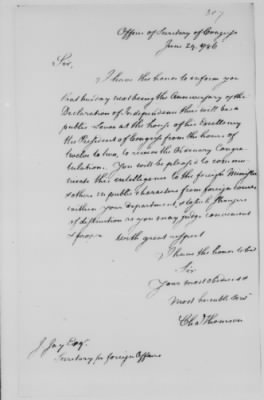 307
Office of Secretary of Congress
June 24. 1786
Sir,
I have the honor to inform you
that tuesday next being the Anniversary of the
Declaration of Independence there will be a
public Levee at the house of his Excellency
the President of Congress from the hour of
twelve to two, to receive the Ordinary Congra-
tulation. You will be pleased to com-
municate this intelligence to the foreign Ministers
& others in public characters from foreign Powers
within your department, & to such strangers
of distinction as you may judge convenient
& proper
With great respect
I have the honor to be
Sir
Your most obedient &
Most humble Servt
Chas Thomson
J Jay Esqr.
Secretary for foreign Affairs